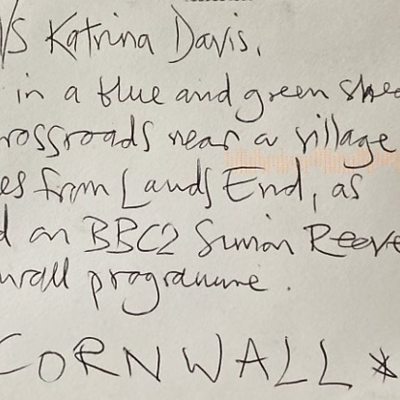 /S Katrina Davis,
in a blue and green shed
rossroads near a village
es from Lands End, as
d on BBC2 Simon Reeve
wall programme.
CORNWALL *